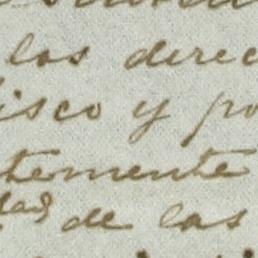 los derec
isco y po
temente
das de las